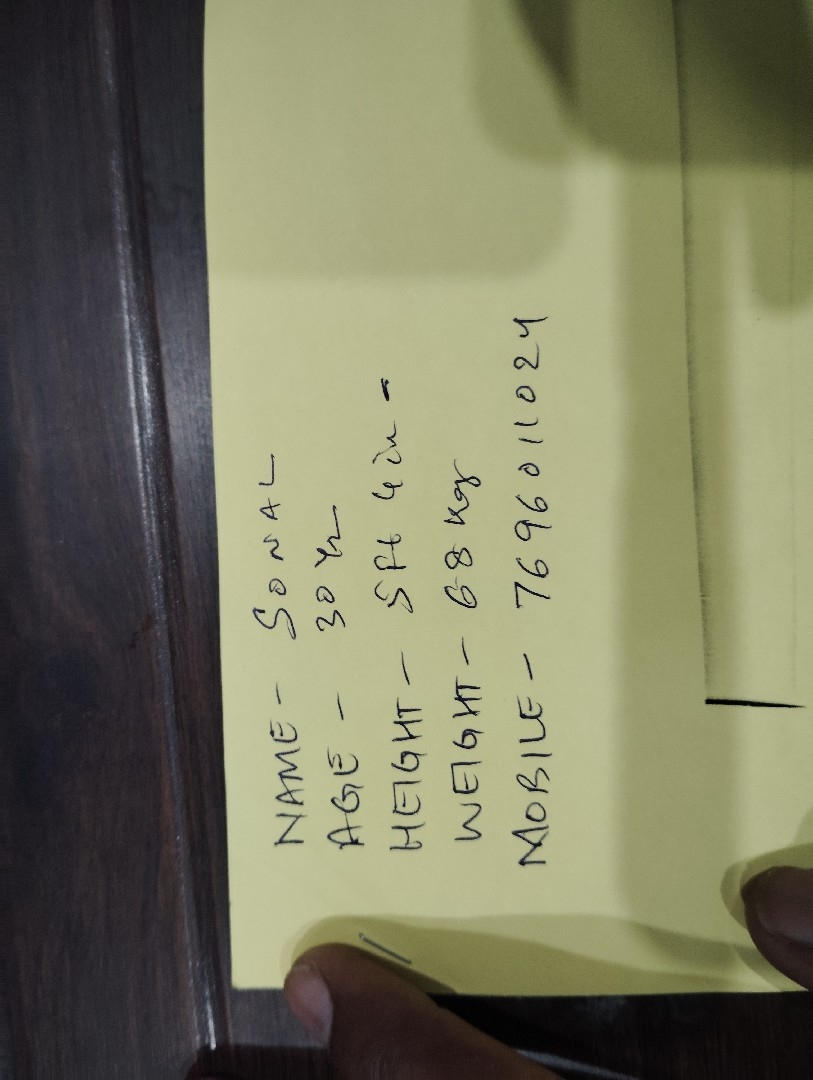 NAME - SONAL
AGE - 30 Yr
HEIGHT - 5ft 4 in -
WEIGHT - 68 Kg
MOBILE - 7696011024